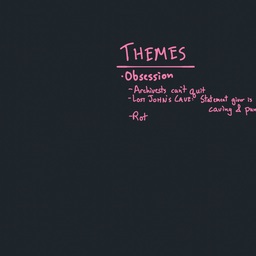 THEMES
· Obsession
- Archivists can't quit
- Lost JOHN'S CAVE? Statement giver is
caving &
- Rot